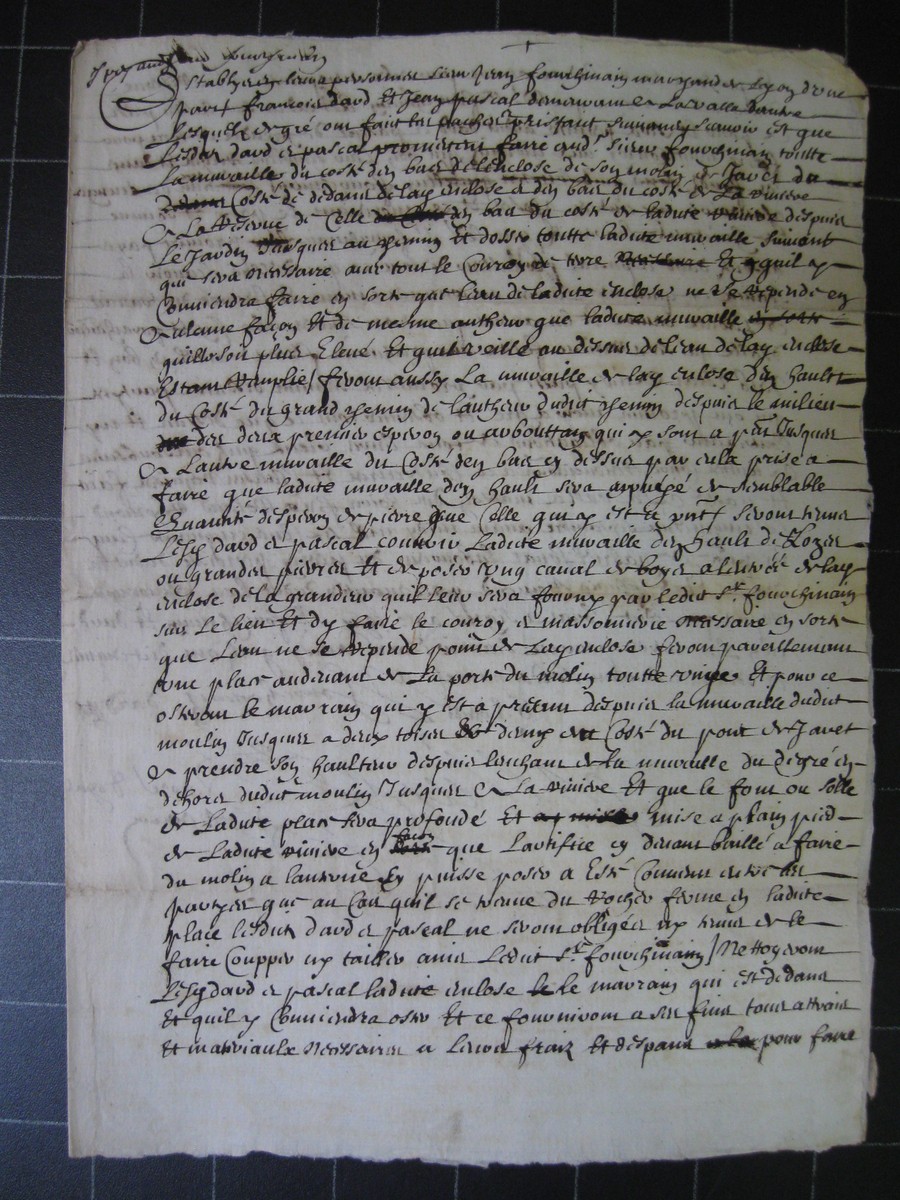 Establys en leurs personnes sieur Jean fourchinain marchand de Lyon d'une
part francois davd Et Jean pascal demeurant a La valla dautre
Lesquels de gré ont faict les paches suivants scavoir est que
Lesdits davd et pascal promettent faire aud. sieur fourchinain toutte
La muraille du costé d'en bas de lenclose de son molin de Javet du
costé de dedans de lay. enclose et d'en bas du costé de La riviere
A La reserve de celle d'en bas du costé de ladite riviere despuis
Le Jardin Jusques au chemin Et dosser toutte ladite muraille suivant
qui sera necessaire avec tout le Couroy de terre Et quil y
Conviendra faire en sorte que leau de ladite enclose ne se repende en
aulcune façon Et de mesme autheur que ladite muraille
quelle soit plus Elevé Et
Estant Remplie / feront aussy La muraille de lay enclose d'en hault
du Costé du grand chemin de lautheur dudict chemin despuis le milieu
des deux premiers esperon ou arbouttan qui y sont a pnt Jusques
A Lautre muraille du Costé d'en bas cy dessus par eulx prise a
faire que ladite muraille d'en hault sera appuyé de semblable
quantité desperon de pierre que Celle qui y est a pnt seront tenus
Lesd davd et pascal couvrir Ladite muraille d'en hault de
ou grandes pierres Et de poser ung canal de boys a lentrée de lay
enclose de la grandeur quil leur sera fourny par ledit Sr fourchinain
sur le lieu Et dy faire le couroy et massonnerie necessaire en sorte
que Leau ne se repende point de Lay enclose feront pareillement
une place audevant de La porte du molin toutte Et pour ce
osteront le marrain qui y est a present despuis la muraille dudit
moulin Jusques a deux toises demy du Costé du pont de Javet
A prendre son haulteur despuis de la muraille du degré en
dehors dudit moulin Jusques A La riviere Et que le font ou solle
de Ladite place sera profondé Et mise a plain pied
de Ladite riviere en façon que Lartifice cy devant baillé a faire
du molin a puisse poser a Esté Convenu entre les
partyes que au Cas quil se treuve du Rocher ferme en ladite
place lesdits davd et pascal ne seront obligés ny tenus de le
faire Coupper ny tailler ains Ledit Sr fourchinain / Nettoyeront
Lesd davd et pascal ladite enclose le marrain qui est dedans
Et quil y Conviendra oster Et ce fourniront a ses fins tous attraix
Et materiaulx Necessaires a Leurs fraiz Et despans pour faire